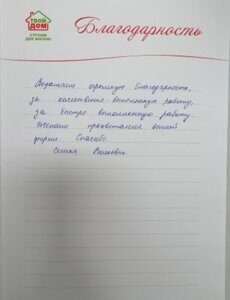 ТВОЙ ДОМ
СТРОИМ
ДЛЯ ЖИЗНИ!
Благодарность
Выражаем огромную благодарность,
за качественно-выполненную работу,
за быстро выполненную работу.
Желаем процветания вашей
фирме Спасибо.
Семья